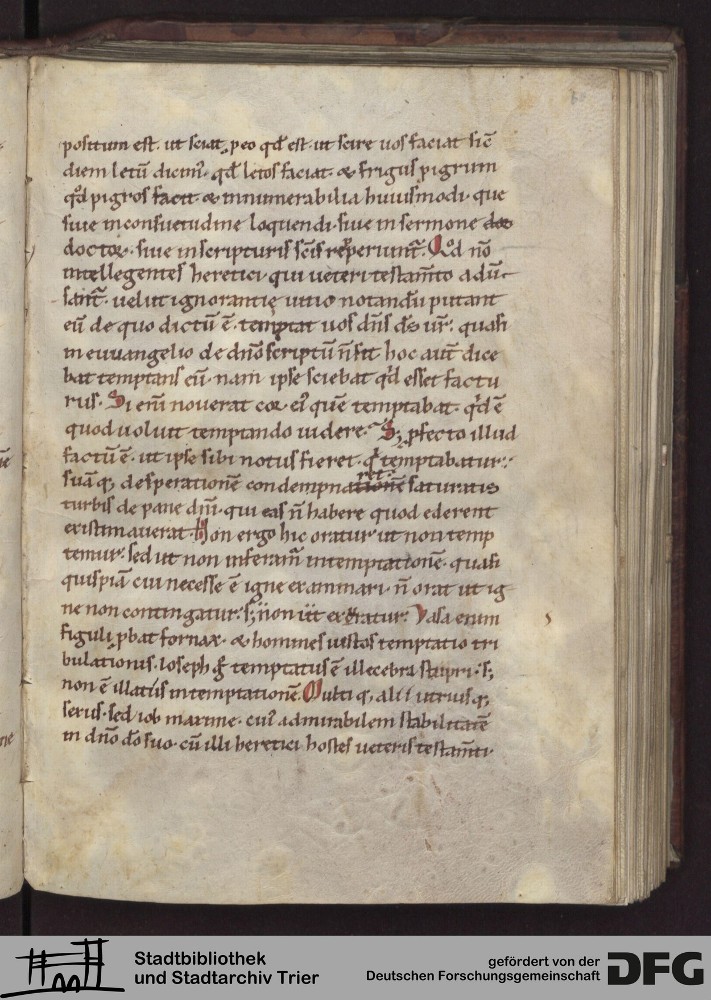 positum est. ut sciat, p eo qđ est. ut scire uos faciat. sic̄
diem letū dicim̄. qđ letos faciat. & frigus pigrum
qđ pigros facit & innumerabilia huiusmodi. que
siue in consuetudine loquendi. siue in sermone
doctoꝝ. siue in scripturis scīs repperiunt̄. Qđ nō
intellegentes heretici. qui ueteri testam̄to aduer
sant̄. uelut ignorantię uitio notandū putant
eū de quo dictū ē. temptat uos dn̄s ds̄ ur̄. quasi
in euuangelio de dn̄o scriptū n̄ sit hoc aut̄ dice
bat temptans eū. nam ipse sciebat qđ esset factu
rus. Si eni͞ nouerat cor ei' quē temptabat. qđ ē
quod uoluit temptando uidere. S; pfecto illud
factū ē. ut ipse sibi notus fieret. q̇ temptabatur.
suāq; desperationē condempnaret saturatis
turbis de pane dn̄i. qui eas n̄ habere quod ederent
existimauerat. Non ergo hic oratur ut non temp
temur. sed ut non inferam̄ in temptationē. quasi
quispiā cui necesse ē igne examinari. n̄ orat ut ig
ne non contingatur. s; ut non exuratur. Vasa enim
figuli pbat fornax. & homines iustos temptatio tri
bulationis. Ioseph g̊ temptatus ē illecebra stupri. s;
non ē illatus in temptationē. Multi q; alii utriusq;
sexus. sed iob maxime. cui' admirabilem stabilitatē
in dn̄o dō suo. cū illi heretici hostes ueteris testam̄ti.
Stadtbibliothek
und Stadtarchiv Trier
gefördert von der
Deutschen Forschungsgemeinschaft
DFG